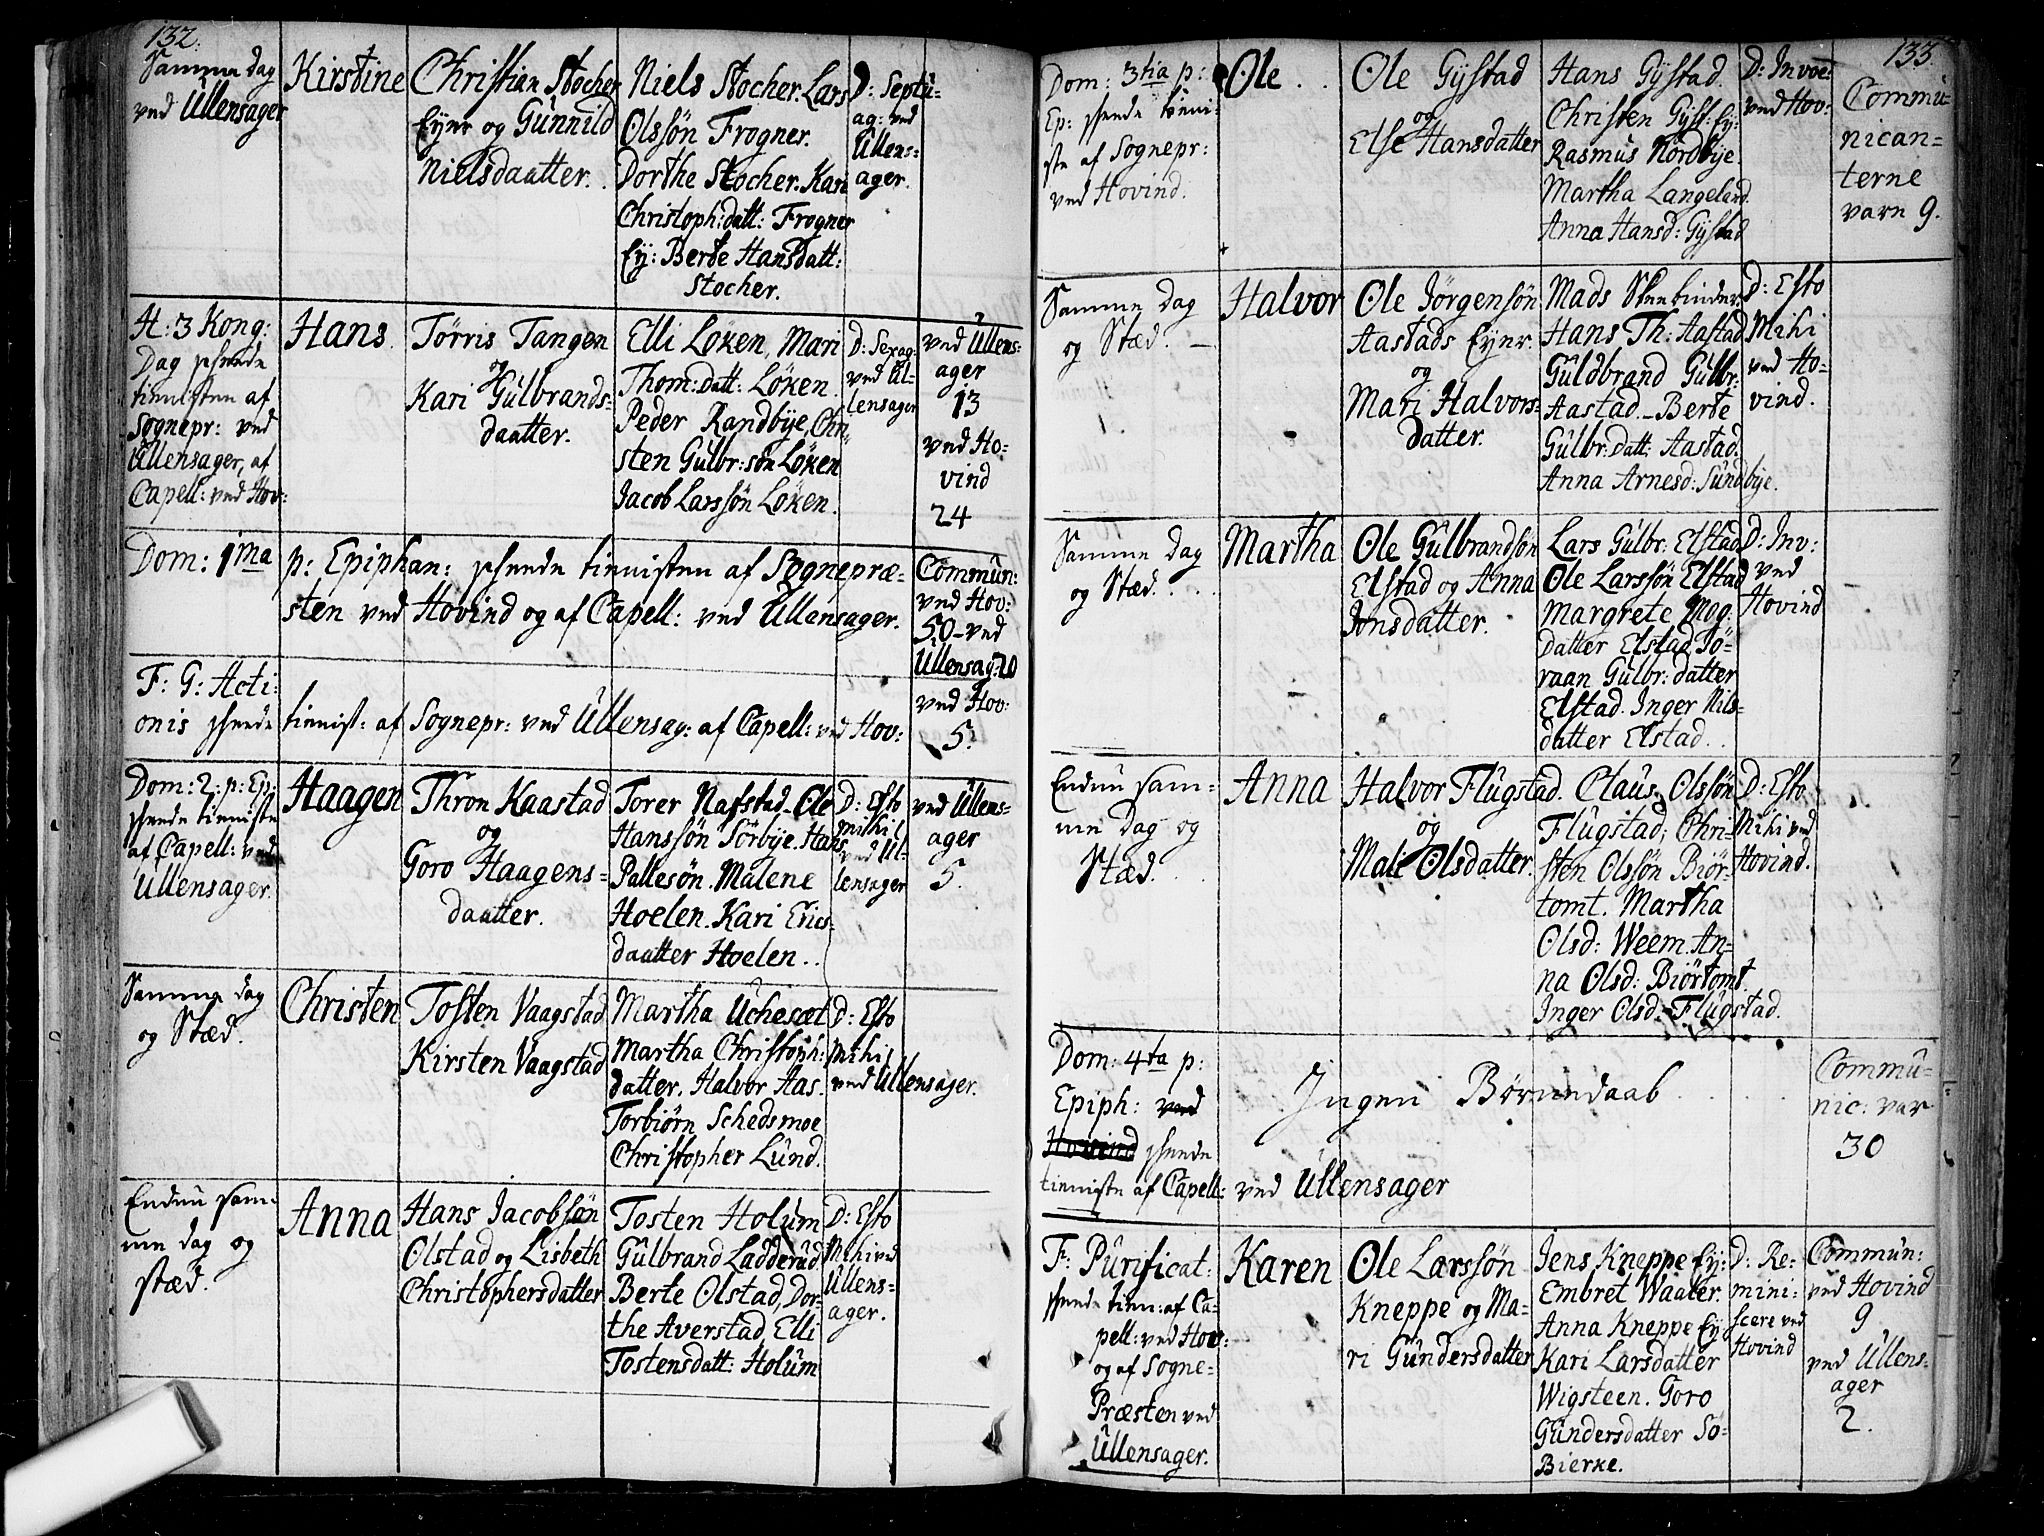 132.
Samme Dag
ved Ullensager
Kirstine
Christian Stocher
Eyer og Gunnild
Nielsdaatter.
Niels Stocher. Lars
Olssön Frogner.
Dorthe Stocher. Kari
Christoph:datt: Frogner
Ey: Berte Hansdatt:
Stocher.
D: Septu-
ag: ved
Ullens-
ager.
H: 3 Kong:
Dag skeede
tienisten af
Sognepr: ved
Ullensager, af
Capell: ved Hov:
Hans.
Tørris Tangen
og
Kari Gulbrands-
daatter.
Elli Løken, Mari
Thom:datt: Løken.
Peder Randbye, Chri-
sten Gulbr:sön Løken
Jacob Larssön Løken.
D: Sexag:
ved Ul-
lensager
ved Ullens-
ager
13
ved Ho-
vind
24
Dom: 1ma p: Epiphan: skeede tienisten af Sognepræ-
sten ved Hovind og af Capell: ved Ullensager.
Commun:
ved Hov:
50 - ved
Ullensag: 20
F: G: Acti-
onis skeede tienist: af Sognepr: ved Ullensag: af Capell: ved Hov:
ved Hov:
5.
Dom: 2: p: Ep:
skeede tieniste
af Capell: ved
Ullensager.
Haagen
Thron Kaastad
og
Goro Haagens-
daatter.
Torer Nafstad. Ole
Hanssön Sörbye. Hans
Pallesön. Malene
Hoelen. Kari Erics-
daatter Hoelen..
D: Esto
mihi
ved Ul-
lensager
ved Ullens-
ager
5.
Samme dag
og Stæd.
Christen
Tosten Vaagstad
Kirsten Vaagstad
Martha Uchesæt
Martha Christoph:
datter. Halvor Aas.
Torbiörn Schedsmoe
Christopher Lund.
D: Esto
Mihi
ved Ullensager.
Endnu sam-
me dag og
stæd.
Anna
Hans Jacobsön
Olstad og Lisbeth
Christophersdatter
Tosten Holum
Gulbrand Ladderud
Berte Olstad, Dor-
the Averstad, Elli
Tostensdatt: Holum
D: Esto
Mihi ved
Ullens-
ager.
133.
Dom: 3tia p:
Ep: skeede tieni-
ste af Sognepr:
ved Hovind.
Ole
Ole Gystad
og
Else Hansdatter
Hans Gystad.
Christen Gyst: Ey:
Rasmus Nordbye.
Martha Langeland.
Anna Hansd: Gystad
D: Invoc:
ved Hov:
Commu-
nican-
terne
vare 9.
Samme Dag
og Stæd.
Halvor
Ole Jörgensön
Aastads Eyer.
og
Mari Halvors-
datter.
Mads Steenbinder.
Hans Th: Aastad
Guldbrand Gulbr:
Aastad. Berte
Gulbr: datt: Aastad.
Anna Arnesd: Sundbye.
D: Esto
Mihi
ved Ho-
vind.
Samme Dag
og Stæd.
Martha
Ole Gulbrandsön
Elstad og Anna
Jonsdatter.
Lars Gulbr: Elstad
Ole Larssön Elstad
Margrete Mog:
datter Elstad. Jö-
raan Gulbr: datter
Elstad. Inger Nils-
datter Elstad.
D: Inv:
ved
Hovind
Endnu sam-
me Dag og
Stæd.
Anna
Halvor Flugstad.
og
Mali Olsdatter.
Claus Olssön
Flugstad; Chri-
sten Olssön Biör-
tomt. Martha
Olsd: Weem. An-
na Olsd: Biörtomt.
Inger Olsd: Flugstad.
D: Esto
Mihi ved
Hovind.
Dom: 4ta p:
Epiph: ved
Hovind skeede
tieniste af Capell: ved Ullensager
Ingen Børnedaab
Commu-
nic: var
30
F: Purificat:
skeede tien: af Ca-
pell: ved Hov:
og af Sogne-
Præsten ved
Ullensager.
Karen
Ole Larssön
Kneppe og Ma-
ri Gundersdatter
Jens Kneppe Ey:
Embret Waaler.
Anna Kneppe Ey:
Kari Larsdatter
Wigsteen. Goro
Gundersdatter Sö-
Bierke.
D: Re-
mini-
scere ved
Hovind
Commun:
ved Hovind
9
ved Ullens-
ager
2.